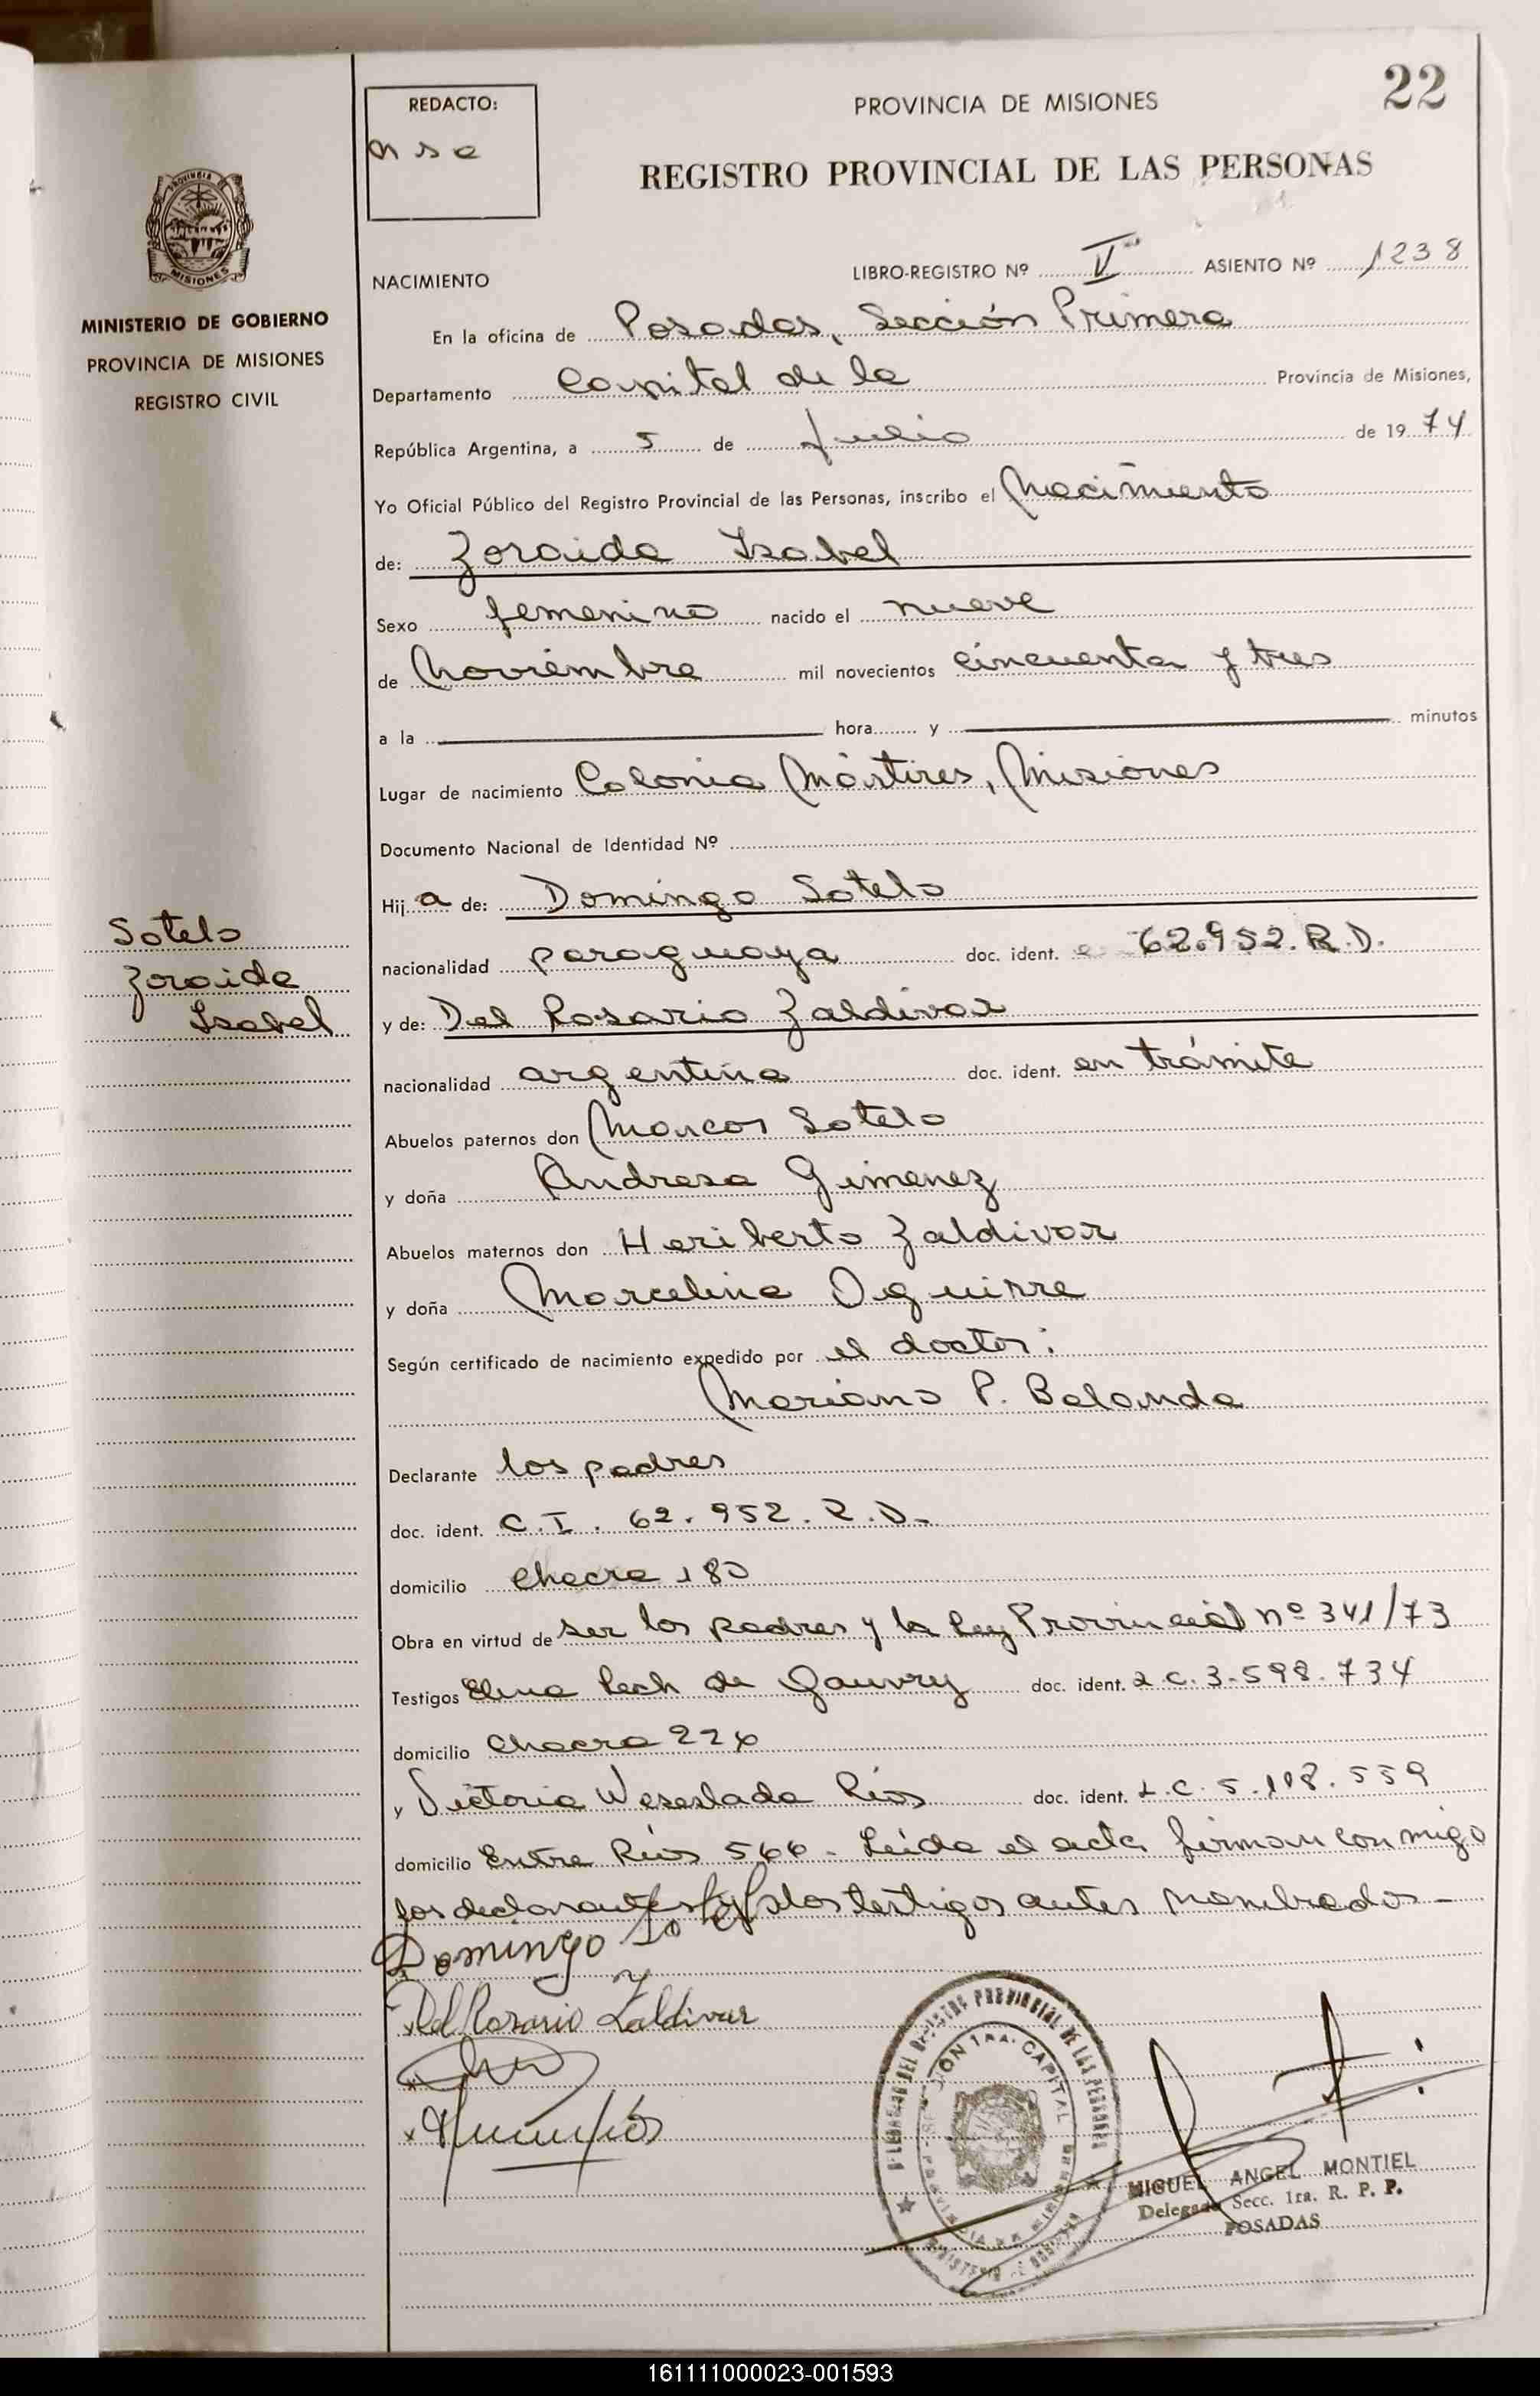 22
REDACTO:
PROVINCIA DE MISIONES
REGISTRO PROVINCIAL DE LAS PERSONAS
MISIONES
MINISTERIO DE GOBIERNO
PROVINCIA DE MISIONES
REGISTRO CIVIL
NACIMIENTO LIBRO-REGISTRO Nº V ASIENTO Nº 1238
En la oficina de Posadas, Sección Primera
Departamento Capital de la Provincia de Misiones,
República Argentina, a 5 de Julio de 1974
Yo Oficial Público del Registro Provincial de las Personas, inscribo el Nacimiento
de: Zoraida Isabel
Sexo femenino nacido el nueve
de Noviembre mil novecientos cincuenta y tres
a la hora y minutos
Lugar de nacimiento Colonia Mártires, Misiones
Documento Nacional de Identidad Nº
Hija de: Domingo Sotelo
Sotelo
Zoraida
Isabel
nacionalidad paraguaya doc. ident. 62.952. R.D.
y de: Del Rosario Zaldivar
nacionalidad argentina doc. ident. en trámite
Abuelos paternos don Marcos Sotelo
y doña Andresa Gimenez
Abuelos maternos don Heriberto Zaldivar
y doña Marcelina
Según certificado de nacimiento expedido por el doctor:
Mariano P. Balanda
Declarante los padres
doc. ident. C.I. 62.952. R.D.
domicilio chacra 180
Obra en virtud de ser los padres y la Ley Provincial nº 341/73
Testigos Elina Pech de Gauvry doc. ident. L.C. 3.598.734
domicilio chacra 226
y Victoria Weseslada Ríos doc. ident. L.C. 5.118.559
domicilio Entre Ríos 566. Leída el acta firman conmigo
los declarantes y los testigos antes nombrados
Domingo
Del Rosario Zaldivar
SECCION 1RA. CAPITAL
MIGUEL ANGEL MONTIEL
Delegado Secc. 1ra. R. P. P.
POSADAS
161111000023-001593